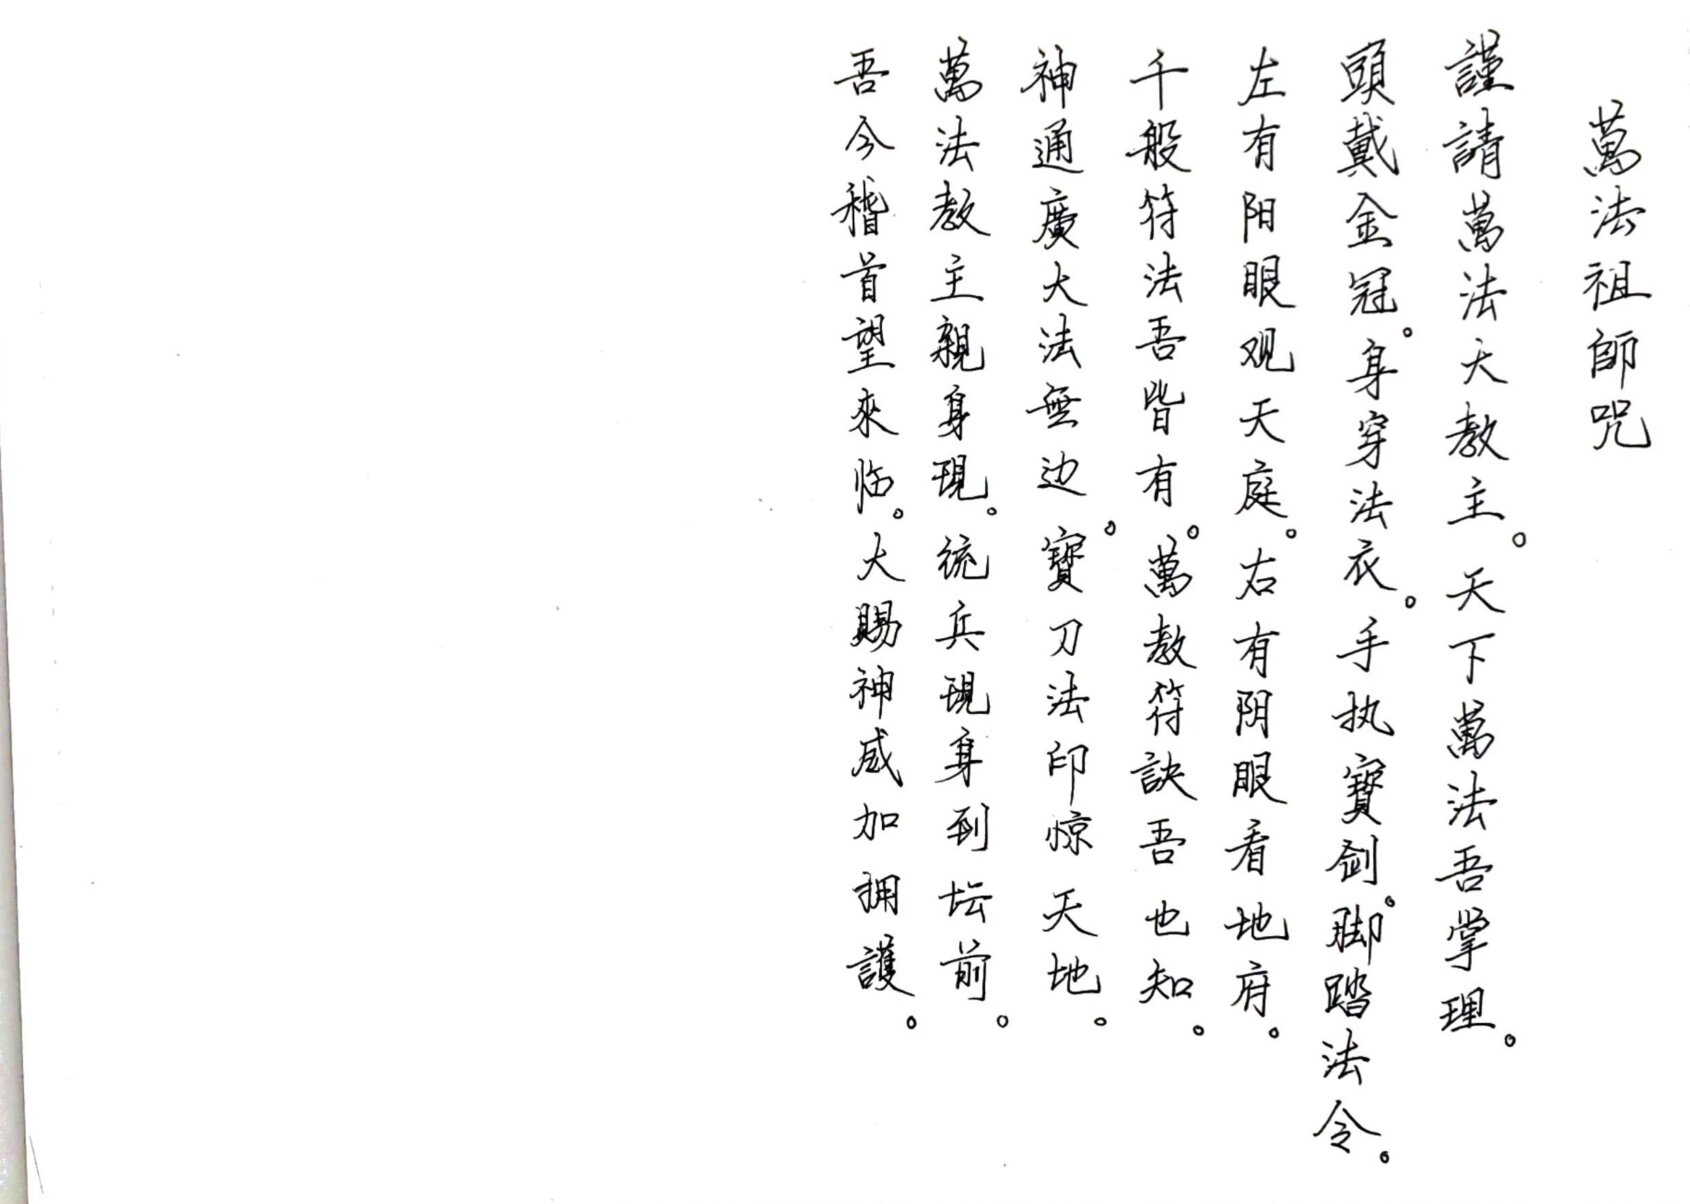 萬法祖師咒
謹請萬法天教主。天下萬法吾掌理。
頭戴金冠。身穿法衣。手执寶劍。脚踏法令。
左有阳眼观天庭。右有阴眼看地府。
千般符法吾皆有。萬教符訣吾也知。
神通廣大法無边。寶刀法印惊天地。
萬法教主親身現。统兵現身到坛前。
吾今稽首望來临。大賜神威加拥護。